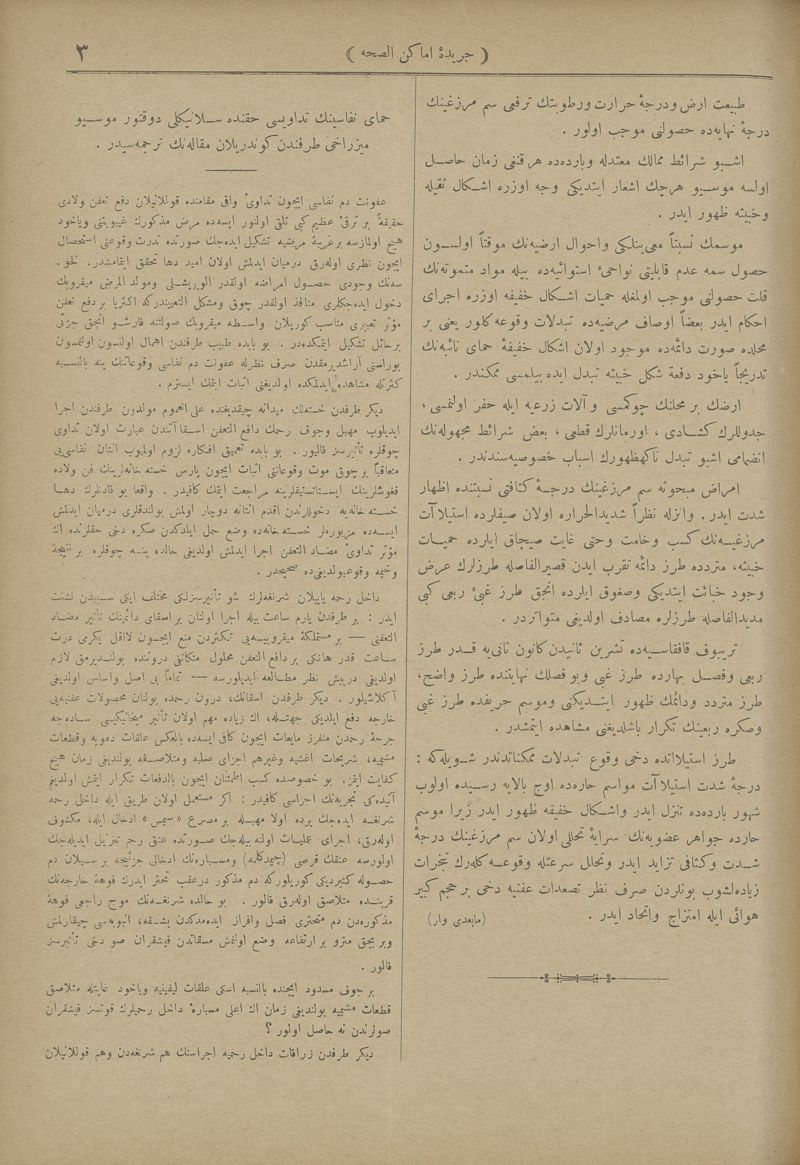 ٣
﴿ جريدۀ اماكن الصحه ﴾
طبيعت ارض ودرجۀ حرارت ورطوبتك ترقى سم مرزغينك
درجۀ نهايه‌ده حصولنى موجب اولور .
اشبو شرائط ممالك معتدله وبارده‌ده هر قنغى زمان حاصل
اولسه موسيو هرچك اشعار ايتديكى وجه اوزره اشكال ثقيله
وخبيثه ظهور ايدر .
موسمك نسبتاً واحوال ارضيه‌نك موقتاً اولسون
حصول سمه عدم قابليتى نواحئ استوائيه‌ده بيله مواد متموته‌نك
قلت حصولنى موجب اولمغله حميات اشكال خفيفه اوزره اجراى
احكام ايدر بعضاً اوصاف مرضيه‌ده تبدلات وقوعه كلور يعنى بر
محلده صورت دائمه‌ده موجود اولان اشكال خفيفۀ حماى نائبه‌نك
تدريجاً ياخود دفعة شكل خبيثه تبدل ايده بيلمسى ممكندر .
ارضك بر محلنك چوكمسى وآلات زرعيه ايله حفر اولنمسى ،
جدوللرك كشادى ، اورمانلرك قطعى ، بعض شرائط مجهوله‌نك
انضمامى اشبو تبدل ناكهظهورك اسباب خصوصيه‌سندندر .
امراض مبحوثه سم مرزغينك درجۀ كثافتى نسبتنده اظهار
شدت ايدر . وانزله نظراً شديدالحراره اولان صيفلرده استيلاآت
مرزغيه‌نك كسب وخامت وحتى غايت صيجاق ايلرده حميات
خبيثه، متردده طرز دائمه تقرب ايدن قصيرالفاصله طرزلرك عرض
وجود خباثت ايتديكى وصغوق ايلرده انجق طرز غبئ ربعى كبى
مديدالفاصله طرزلره مصادف اولديغى متواتردر .
تريبوف قافقاسيه‌ده تشرين ثانيدن كانون ثانى‌يه قدر طرز
ربعى وفصل بهارده طرز غبى وبو فصلك نهايتنده طرز واضح،
طرز متردد ودائمك ظهور ايتديكنى وموسم خريفده طرز غبى
وصكره ربعينك تكرار باشلديغنى مشاهده ايتمشدر .
طرز استيلاآتده دخى وقوع تبدلات ممكناتدندر شويله‌كه :
درجۀ شدت استيلاآت مواسم حارده‌ده اوج بالايه رسيده اولوب
شهور بارده‌ده تنزل ايدر واشكال خفيفه ظهور ايدر زيرا موسم
حارده جواهر عضويه‌نك سرابۀ تحللى اولان سم مرزغينك درجۀ
شدت وكثافتى تزايد ايدر وتحلل سرعتله وقوعه كله‌رك تبخرات
زياده‌لشوب بونلردن صرف نظر تصعدات عفنيه دخى بر حجم كبير
هوائى ايله امتزاج واتحاد ايدر .
(مابعدى وار)
حماى نفاسينك تداويسى حقنده سلانيكلى دوقتور موسيو
ميزراخى طرفندن كوندريلان مقاله‌نك ترجمه‌سيدر .
عفونت دم نفاسى ايچون تداوئ واقى مقامنده قوللانيلان دفع تعفن ولادى
حقيقةً بر ترقئ عظيم كبى تلقى اولنور ايسه‌ده مرض مذكورك غيبوبتنى وياخود
هيچ اولمازسه بر غريبۀ مرضيه تشكيل ايده‌جك صورتده ندرت وقوعنى استحصال
ايچون نظرى اوله‌رق درميان ايدلمش اولان اميد دها تحقق ايتمامشدر. لخو-
سه‌نك وجودى حصول امراضه اولقدر الويريشلى ومولد المرض ميقروبك
دخول ايده‌جكلرى منافذ اولقدر چوق ومشكل التعييندركه اكثريا بر دفع تعفن
مؤثر تعبيرى مناسب كوريلان واسطه ميقروبك صولتنه قارشو انجق جزئى
بر حائل تشكيل ايتمكده‌در . بو بابده طبيب طرفندن اهمال اولنسون اولنمسون
بوراسنى آراشديرمقدن صرف نظرله عفونت دم نفاسى وقوعاتنك ينه بالنسبه
كثرتله مشاهده ايدلمكده اولديغنى اثبات ايتمك ايسترم .
ديكر طرفدن خسته‌لك ميدانه چيقديغنده على‌العموم مولدون طرفندن اجرا
ايديلوب مهبل وجوف رحمك دافع التعفن اسقاآتندن عبارت اولان تداوى
چوقلره تأثيرسز قاليور . بو بابده تعميق افكاره لزوم اولميوب انتان نفاسى‌يى
متعاقباً بر چوق موت وقوعاتنى اثبات ايچون پارس خسته خانه‌لرينك فن ولاده
قغوشلرينك ايستاتستيقلرينه مراجعت ايتمك كافيدر . واقعا بو قادينلرك دها
خسته‌خانه‌يه دخوللرندن اقدم انتانه دوچار اولمش بولندقلرى درميان ايدلمش
ايسه‌ده مزبورلر خسته‌خانه‌ده وضع حمل ايلدكدن صكره دخى حقلرنده اك
مؤثر تداوئ مضاد التعفن اجرا ايدلمش اولديغى حالده ينه چوقلره بر نتيجۀ
وخيمه وقوعبولديغى‌ده صحيحدر .
داخل رحمه ياپيلان شرنغه‌لرك شو تأثيرسزلكى مختلف ايكى سببدن نشئت
ايدر : بر طرفدن يارم ساعت بيله اجرا اولنان بر اسقاى دائمينك تأثير مضاد
التعفنى — بر مستملكۀ ميقروبيه‌يى تكثردن منع ايچون لااقل يكرمى درت
ساعت قدر هانكى بر دافع التعفن محلول متكاثفى دروننده بولنديرمق لازم
اولديغى درپيش نظر مطالعه ايديلورسه — تماماً بى اصل واساس اولديغى
آكلاشيلور . ديكر طرفدن اسقانك، درون رحمده بولنان محصولات عفنيه‌يى
خارجه دفع ايلديكى جهتله، اك زياده مهم اولان تأثير ميخانيكيسى ساده‌جه
جرحۀ رحمدن منفرز مايعات ايچون كافى ايسه‌ده بالعكس علقات دمويه وقطعات
مشيميه، شريحات اغشيه وغيرهم اجزاى صلبه ومتلاصقه بولنديغى زمان هيچ
كفايت ايتمز. بو خصوصده كسب اطمئنان ايچون بالدفعات تكرار ايتمش اولديغم
آتيده‌كى تجربه‌نك اجراسى كافيدر : اكر مستعمل اولان طريق ايله داخل رحمه
شرنغه ايده‌جك يرده اولا مهبله بر مصرع « سيمس » ادخال ايله، مكشوف
اوله‌رق، اجراى عمليات اولنه بيله‌جك صورتده عنق رحم تنزيل ايديله‌جك
اولورسه عنقك قرصى (چيمدكله) ومسباره‌نك ادخالى جزئيجه بر سيلان دم
حصوله كتيرديكى كوريلوركه دم مذكور درعقب تخثر ايدرك فوهۀ خارجه‌نك
قربنده متلاصق اوله‌رق قالور . بو حالده شرنغه‌نك موج راجعى فوهۀ
مذكوره‌دن دم متخثرى فصل وافراز ايده‌مدكدن بشقه، انبوبه‌سى چيقارلمش
وبر بچق مترو بر ارتفاعه وضع اولنمش مسقاتدن فيشقران صو دخى تأثيرسز
قالور .
بر جوف مسدود ايچنده بالنسبه اسكى علقات ليفينيه وياخود غايتله متلاصق
قطعات مشيميه بولنديغى زمان اك اعلى مسبارۀ داخل رحميلرك قوتسز فيشقران
صولرندن نه حاصل اولور ؟
ديكر طرفدن زراقات داخل رحميه اجراسنك هم شرنغه‌دن وهم قوللانيلان